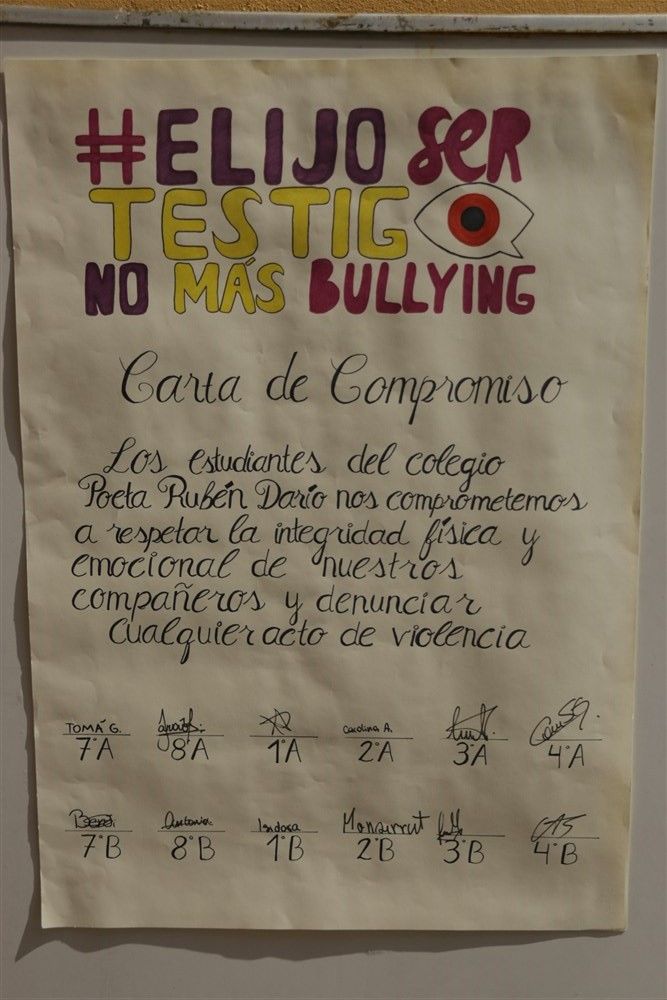 #ELIJO SER
TESTIGO
NO MÁS BULLYING
Carta de Compromiso
Los estudiantes del colegio
Poeta Rubén Darío nos comprometemos
a respetar la integridad física y
emocional de nuestros
compañeros y denunciar
cualquier acto de violencia
TOMÁ G. Carolina A.
7°A 8°A 1°A 2°A 3°A 4°A
Antonia Monserrat
7°B 8°B 1°B 2°B 3°B 4°B